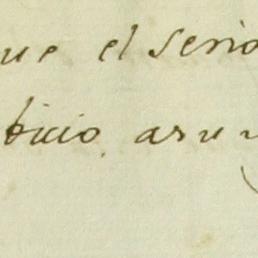 ue el Seño
ticio. asu